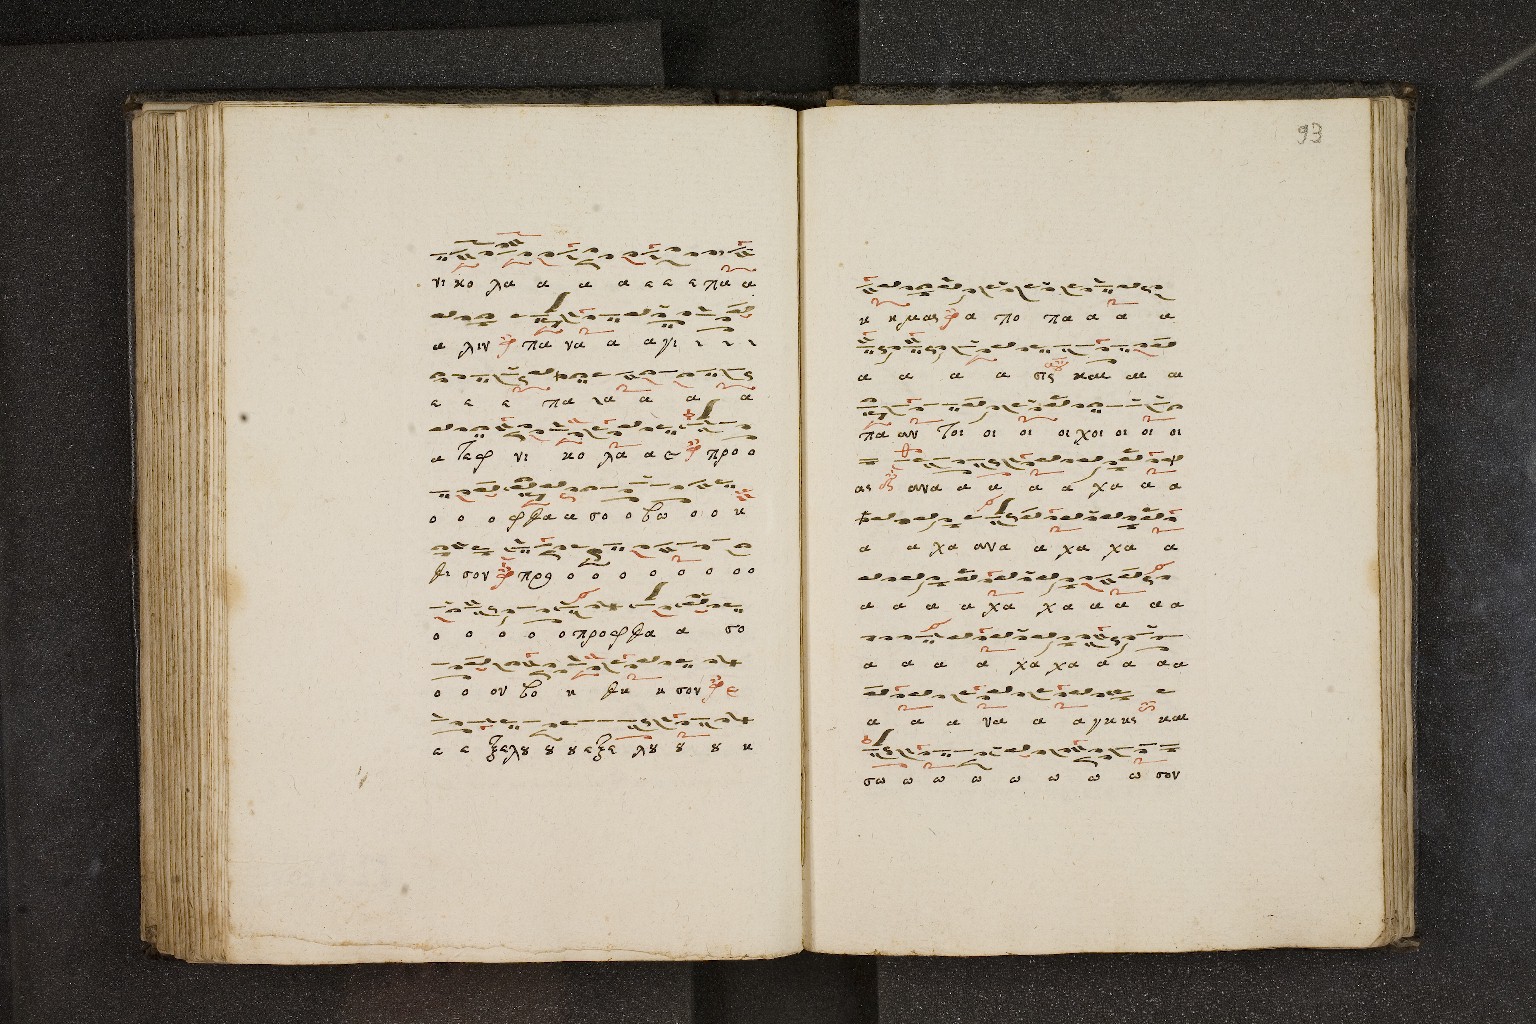 νι κο λα α α α ε ε ε πα α
α λιν πα να α αγι ι ι ι
ε ε ε πα λα α α α
α τερ νι κο λα α ε προ ο
ο ο ο φθα α σο ο βω ο ο η
θι σον προ ο ο ο ο ο ο ο ο
ο ο ο ο ο προφθα α σο
ο ο ον βο η θη η σον ε
ε ε ξελȣ ȣ ȣ εξε λȣ ȣ ȣ η
93
η ημας α πο πα α α α
α α α α σης και αι αι
πα αν τοι οι οι οι χοι οι οι οι
ας ανα α α α α χα α α
α α χα ανα α χα χα α
α α α α χα χα α α α α
α α α α χα χα α α α α
α α α να α α γκης και
σω ω ω ω ω ω ω ω σον